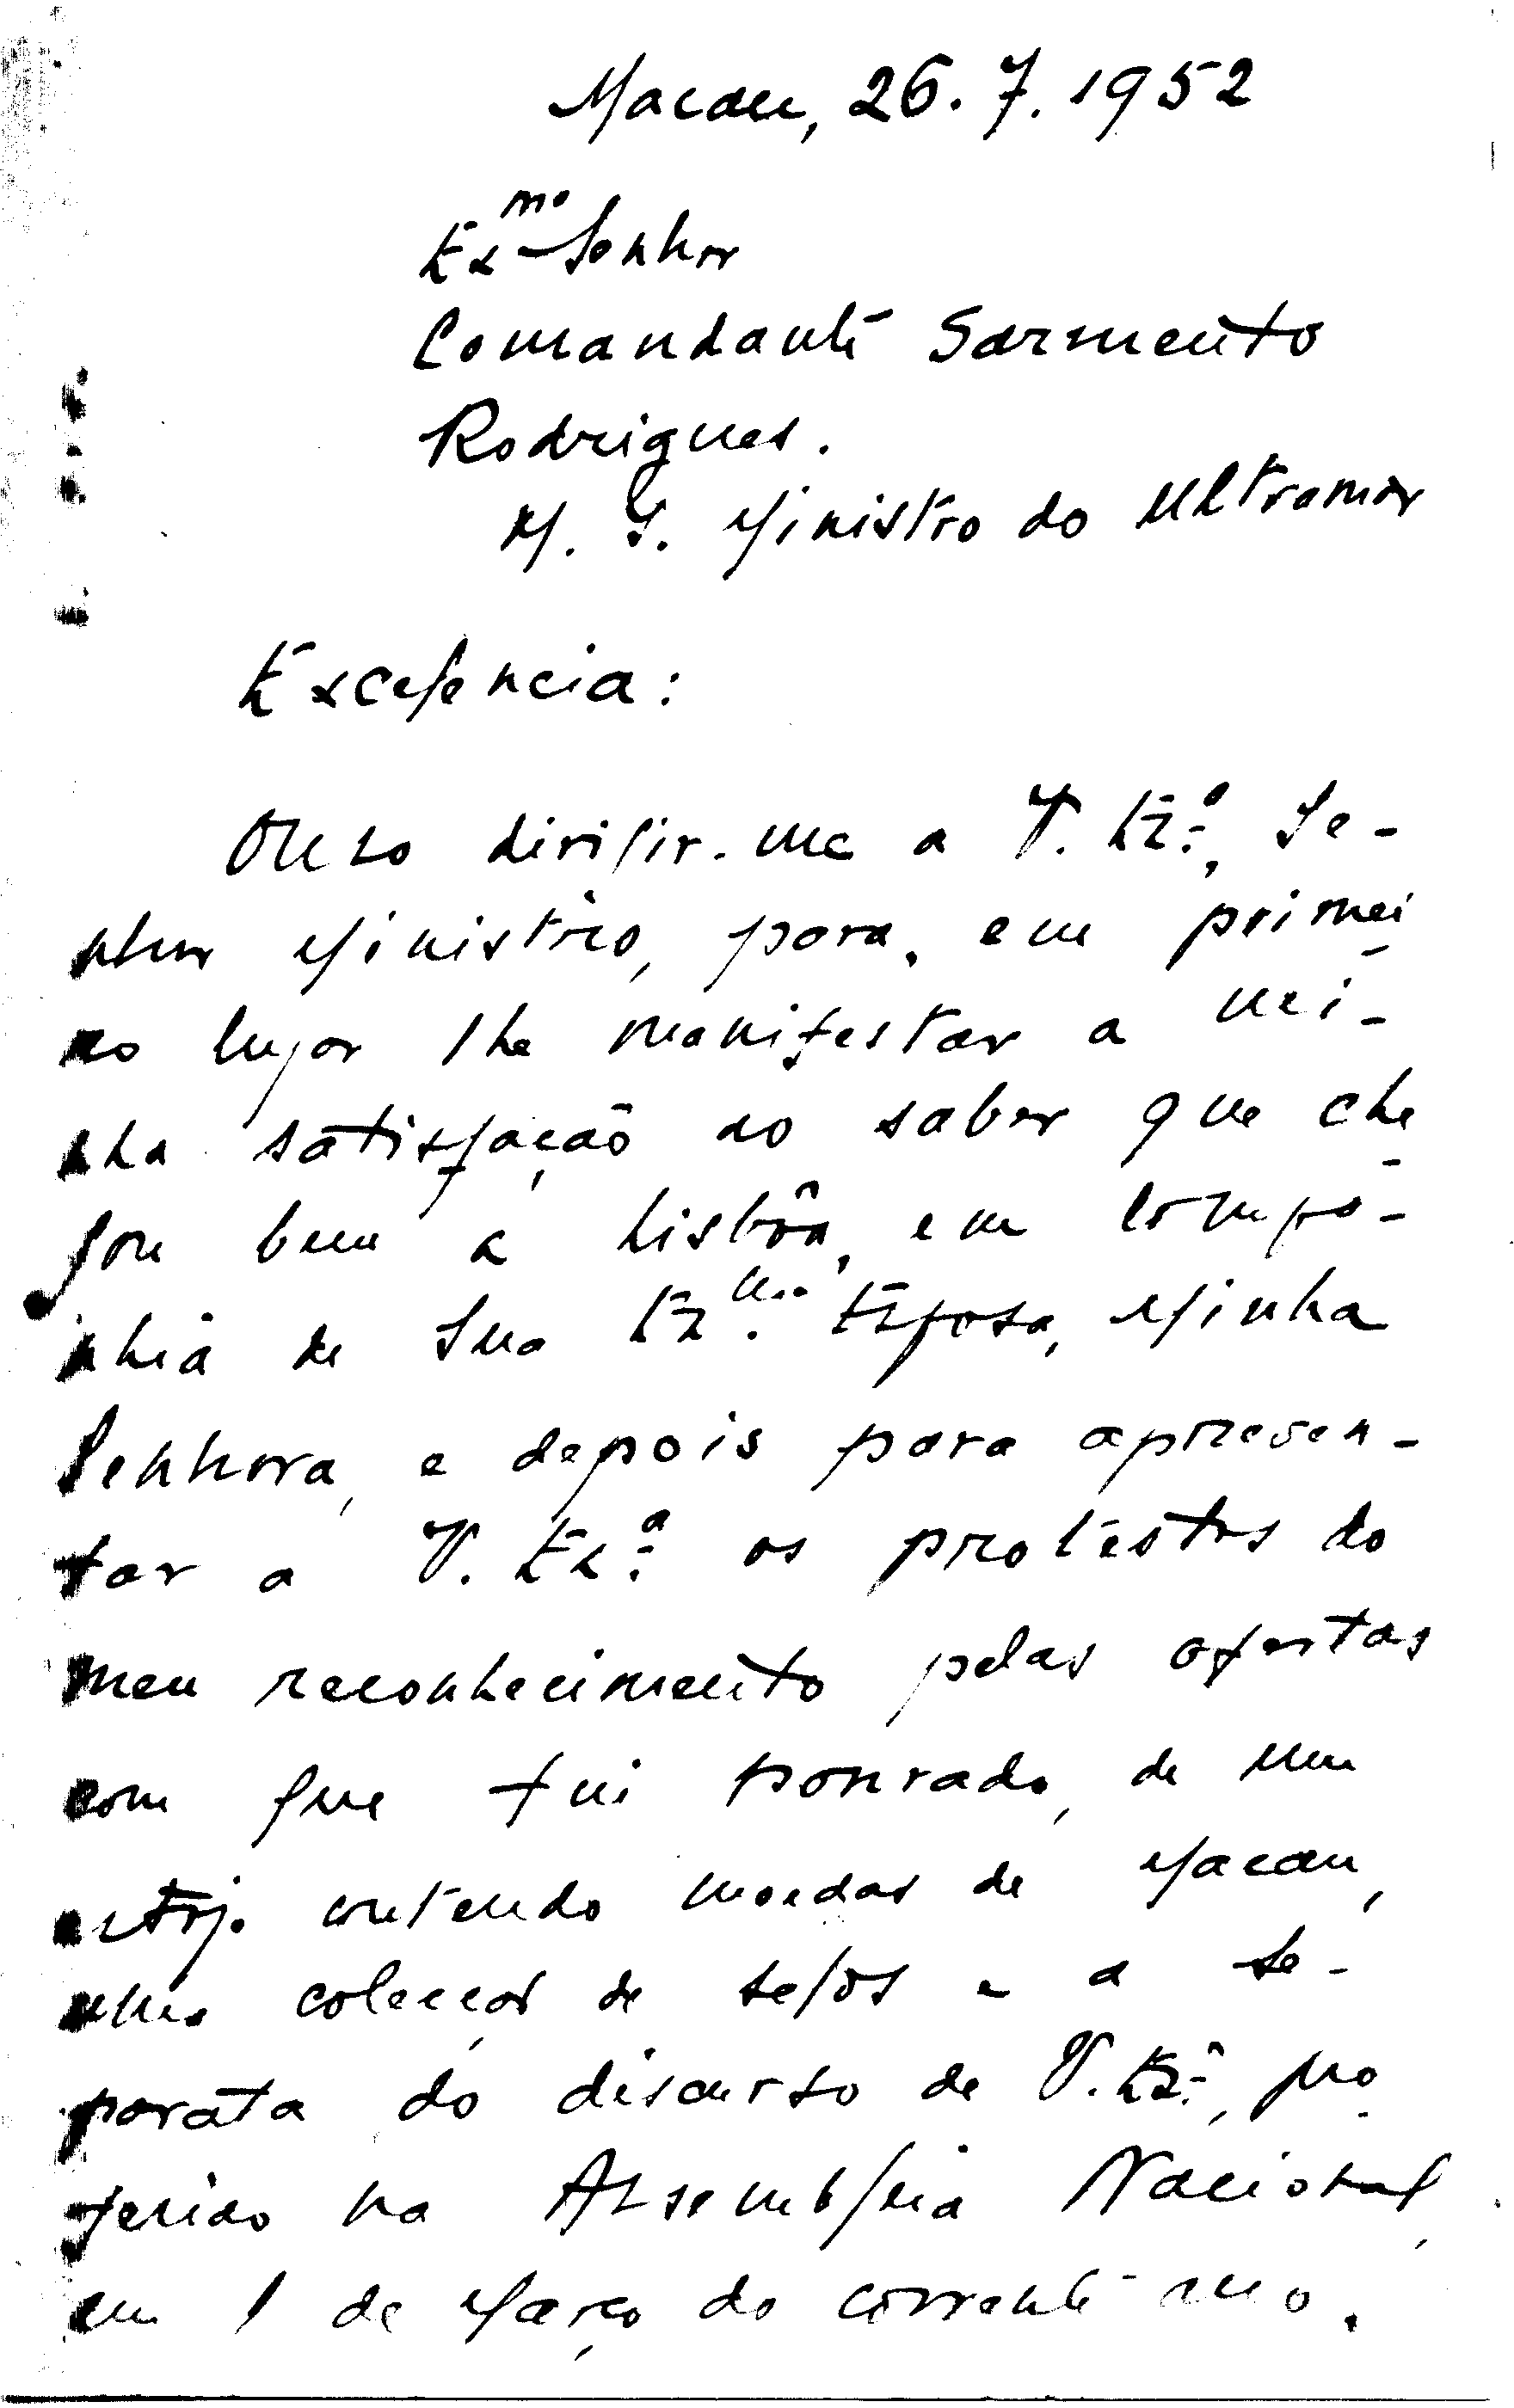 Macau, 26.7.1952
Exmo Senhor
Comandante Sarmento
Rodrigues.
M. G. Ministro do Ultramar
Excelencia:
Ouso dirigir-me a V. Exª, Se-
nhor Ministro, para, em primei-
ro lugar lhe manifestar a mi-
nha satisfação ao saber que che-
gou bem a Lisbôa, em compa-
nhia de Sua Exma. Esposa, Minha
Senhora, e depois para apresen-
tar a V. Exª os protestos do
meu reconhecimento pelas ofertas
com que fui honrado, de um
estojo contendo moedas de Macau,
uma colecção de selos e a se-
parata do discurso de V. Exª, pro-
ferido na Assembleia Nacional,
em 1 de Março do corrente ano.